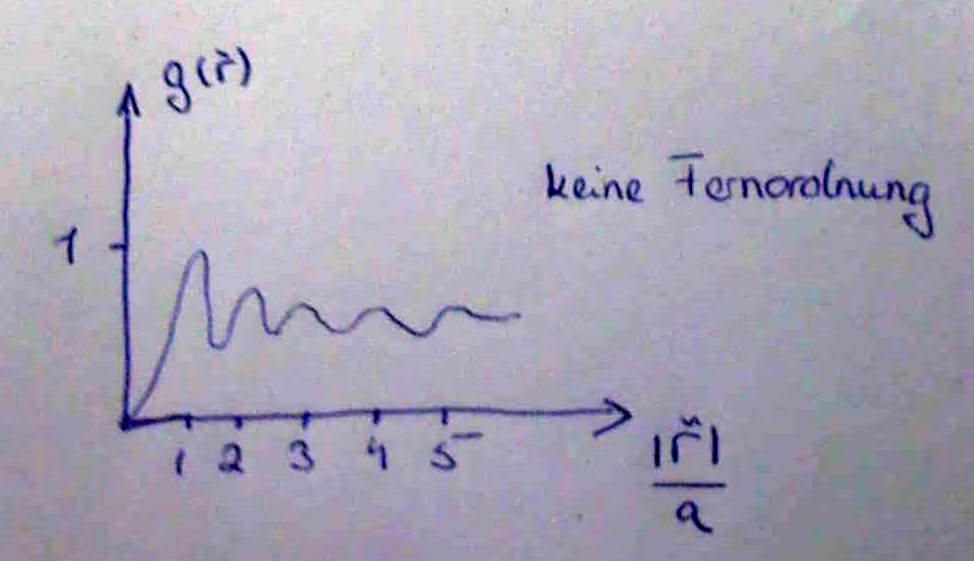 g(r⃗)
keine Fernordnung
1
1 2 3 4 5
|r⃗|
a